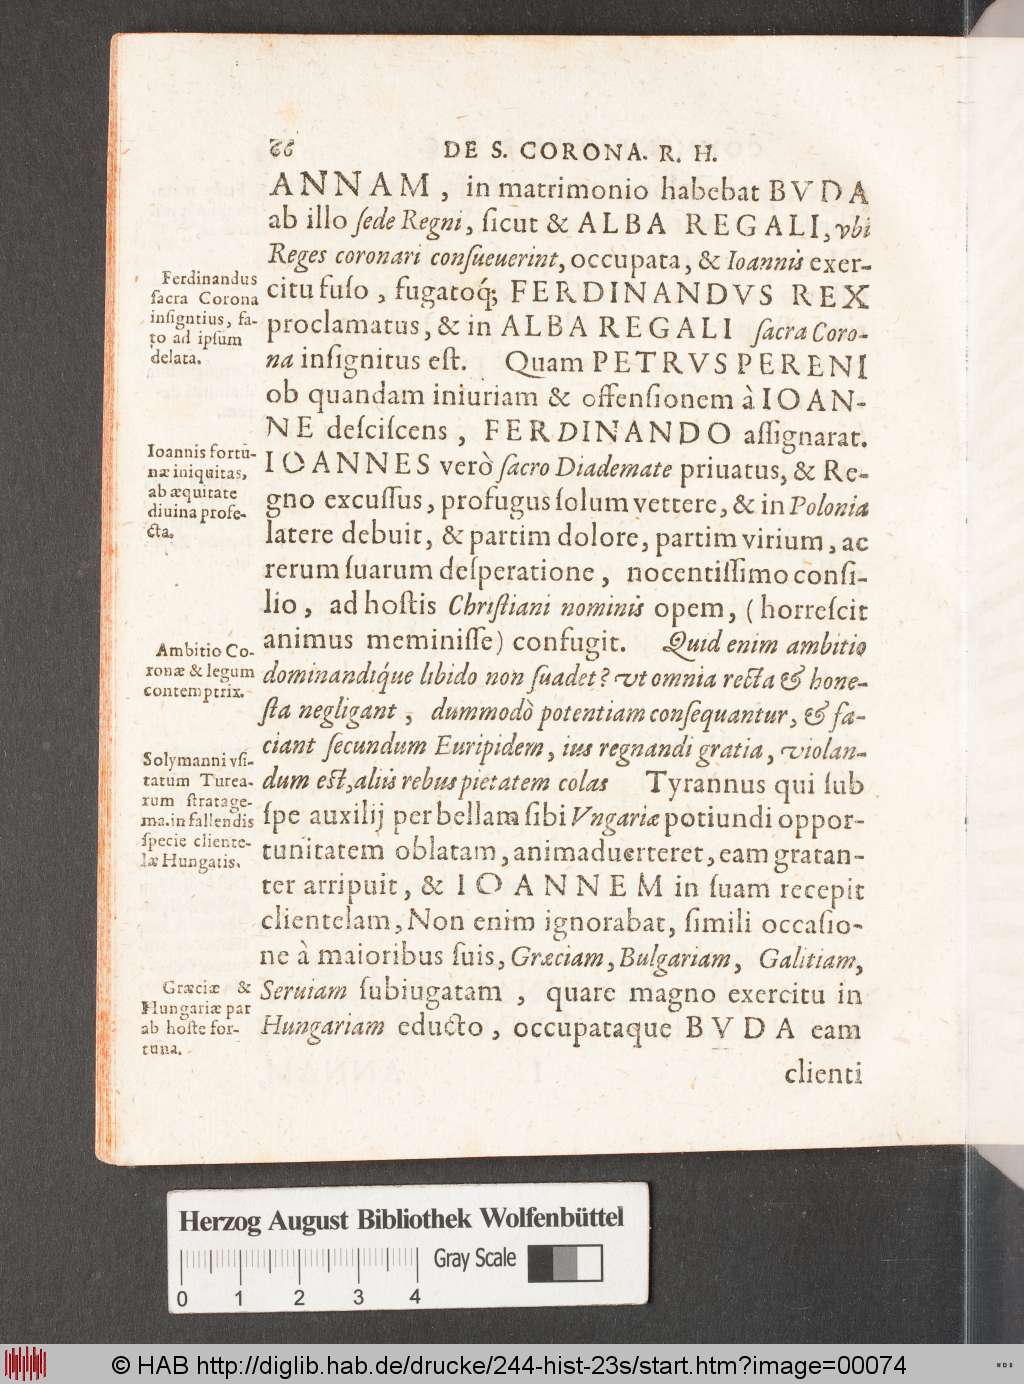 66 DE S. CORONA. R. H.
ANNAM, in matrimonio habebat BVDA
ab illo ſede Regni, ſicut & ALBA REGALI, vbi
Reges coronari conſueuerint, occupata, & Ioannis exer-
citu fuſo, fugatoq́; FERDINANDVS REX
proclamatus, & in ALBA REGALI ſacra Coro-
na inſignitus eſt. Quam PETRVS PERENI
ob quandam iniuriam & offenſionem à IOAN-
NE deſciſcens, FERDINANDO aſſignarat.
IOANNES verò ſacro Diademate priuatus, & Re-
gno excuſſus, profugus ſolum vertere, & in Polonia
latere debuit, & partim dolore, partim virium, ac
rerum ſuarum deſperatione, nocentiſſimo conſi-
lio, ad hoſtis Chriſtiani nominis opem, (horreſcit
animus meminiſſe) confugit. Quid enim ambitio
dominandiq́ue libido non ſuadet? vt omnia recta & hone-
ſta negligant, dummodò potentiam conſequantur, & fa-
ciant ſecundum Euripidem, ius regnandi gratia, violan-
dum eſt, aliis rebus pietatem colas Tyrannus qui ſub
ſpe auxilij perbellam ſibi Vngariæ potiundi oppor-
tunitatem oblatam, animaduerteret, eam gratan-
ter arripuit, & IOANNEM in ſuam recepit
clientelam, Non enim ignorabat, ſimili occaſio-
ne à maioribus ſuis, Græciam, Bulgariam, Galitiam,
Seruiam ſubiugatam, quare magno exercitu in
Hungariam educto, occupataque BVDA eam
clienti
Ferdinandus
ſacra Corona
inſigntius, fa-
to ad ipſum
delata.
Ioannis fortu-
næ iniquitas,
ab æquitate
diuina profe-
cta.
Ambitio Co-
ronæ & legum
contemptrix.
Solymanni vſi-
tatum Turca-
rum ſtratage-
ma, in fallendis
ſpecie cliente-
læ Hungaris.
Græciæ &
Hungariæ par
ab hoſte for-
tuna.
Herzog August Bibliothek Wolfenbüttel
Gray Scale
0 1 2 3 4
© HAB http://diglib.hab.de/drucke/244-hist-23s/start.htm?image=00074